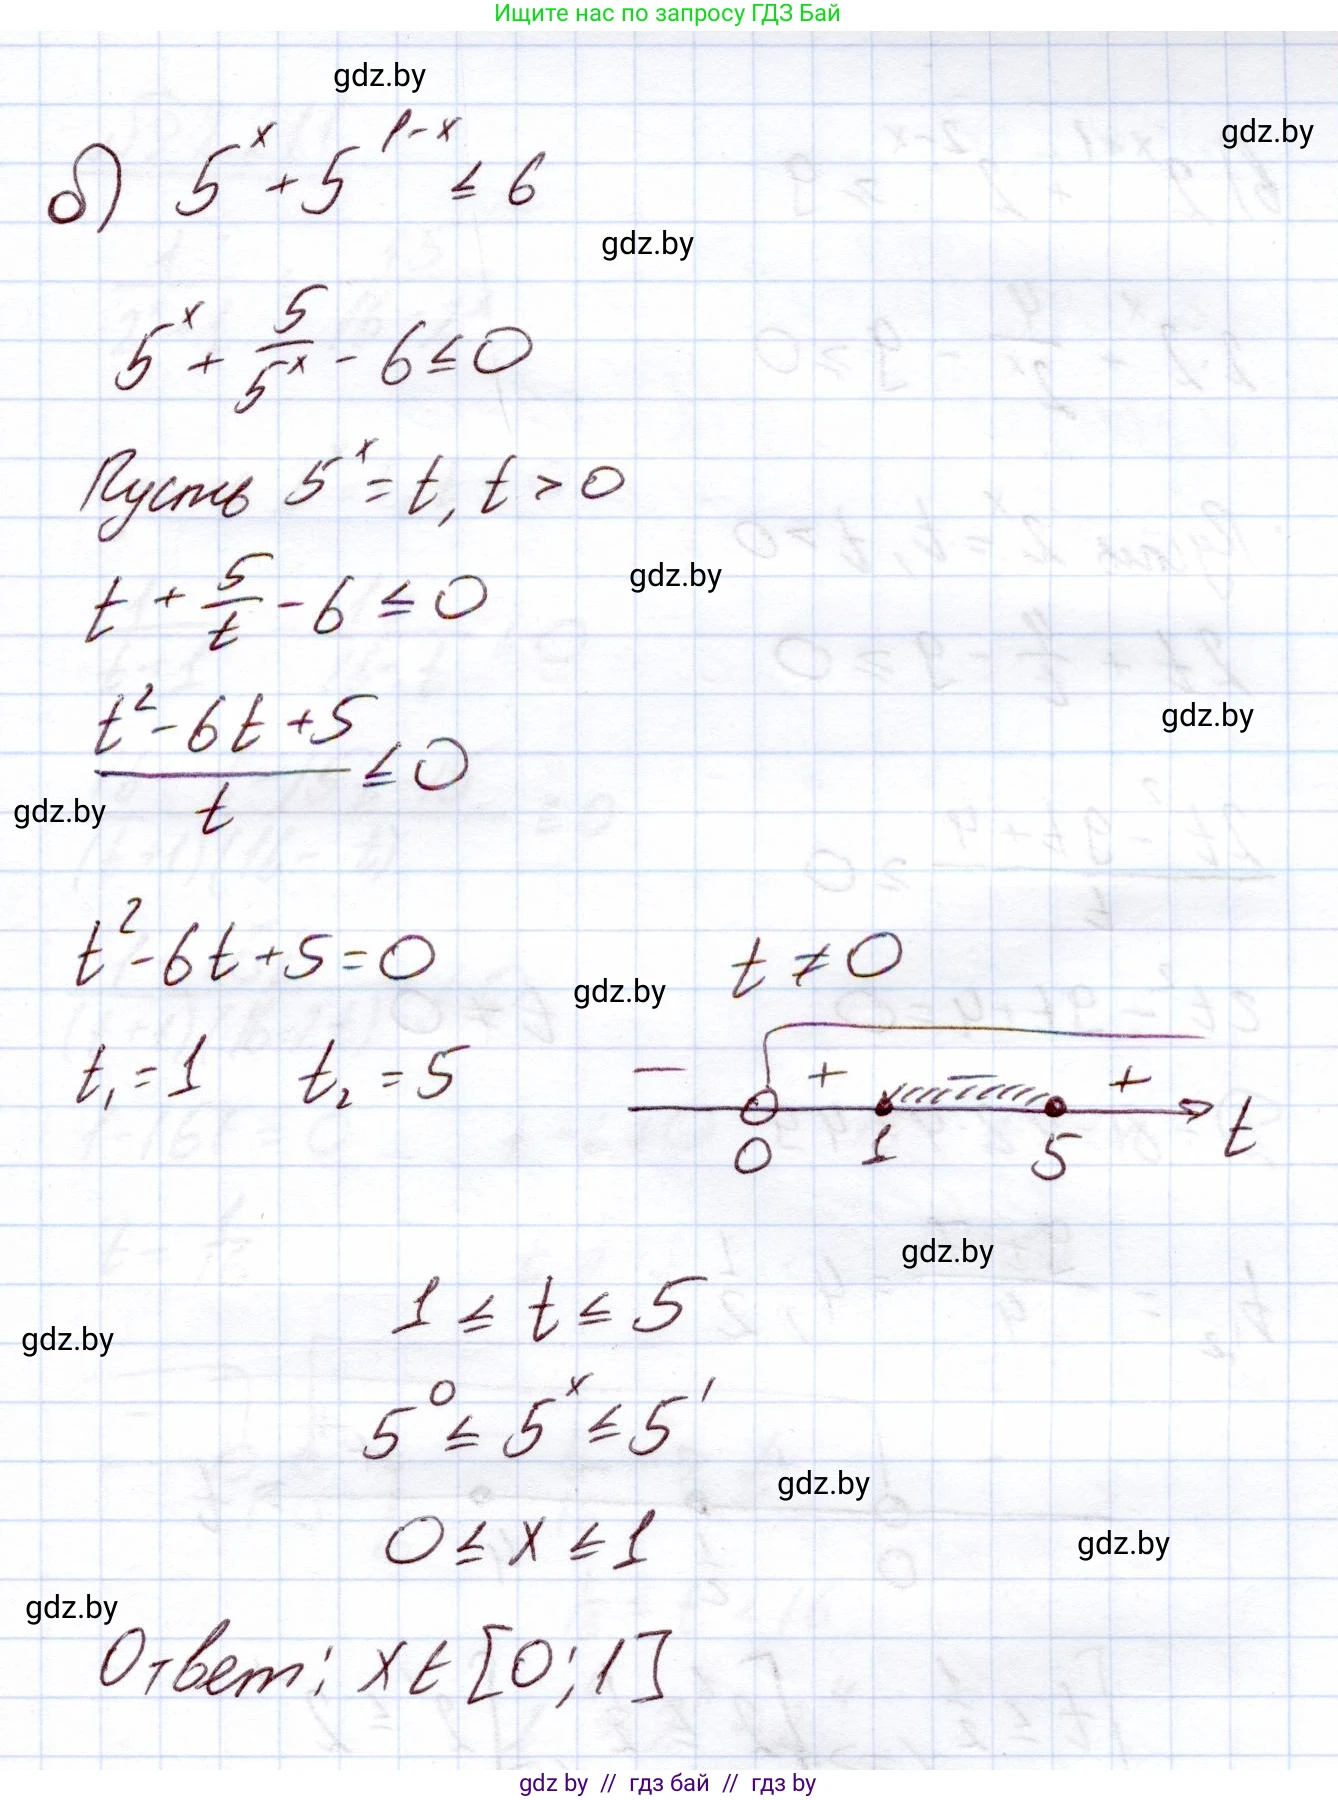 Ищите нас по запросу ГДЗ Бай
gdz.by
gdz.by
б) 5^x + 5^(1-x) ≤ 6
gdz.by
5^x + 5/5^x - 6 ≤ 0
Пусть 5^x = t, t > 0
gdz.by
t + 5/t - 6 ≤ 0
gdz.by
(t² - 6t + 5)/t ≤ 0
gdz.by
t² - 6t + 5 = 0 t ≠ 0
gdz.by
t₁ = 1 t₂ = 5
− + − +
0 1 5 t
gdz.by
1 ≤ t ≤ 5
gdz.by
5^0 ≤ 5^x ≤ 5^1
gdz.by
0 ≤ x ≤ 1
gdz.by
gdz.by
Ответ: x ∈ [0; 1]
gdz by // гдз бай // гдз by